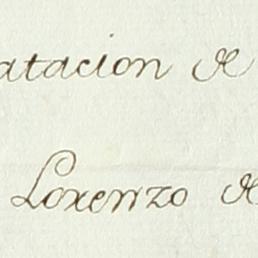 atacion de
Lorenzo de